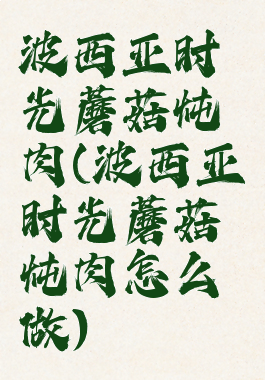 波西亚时
光蘑菇炖
肉(波西亚
时光蘑菇
炖肉怎么
做)